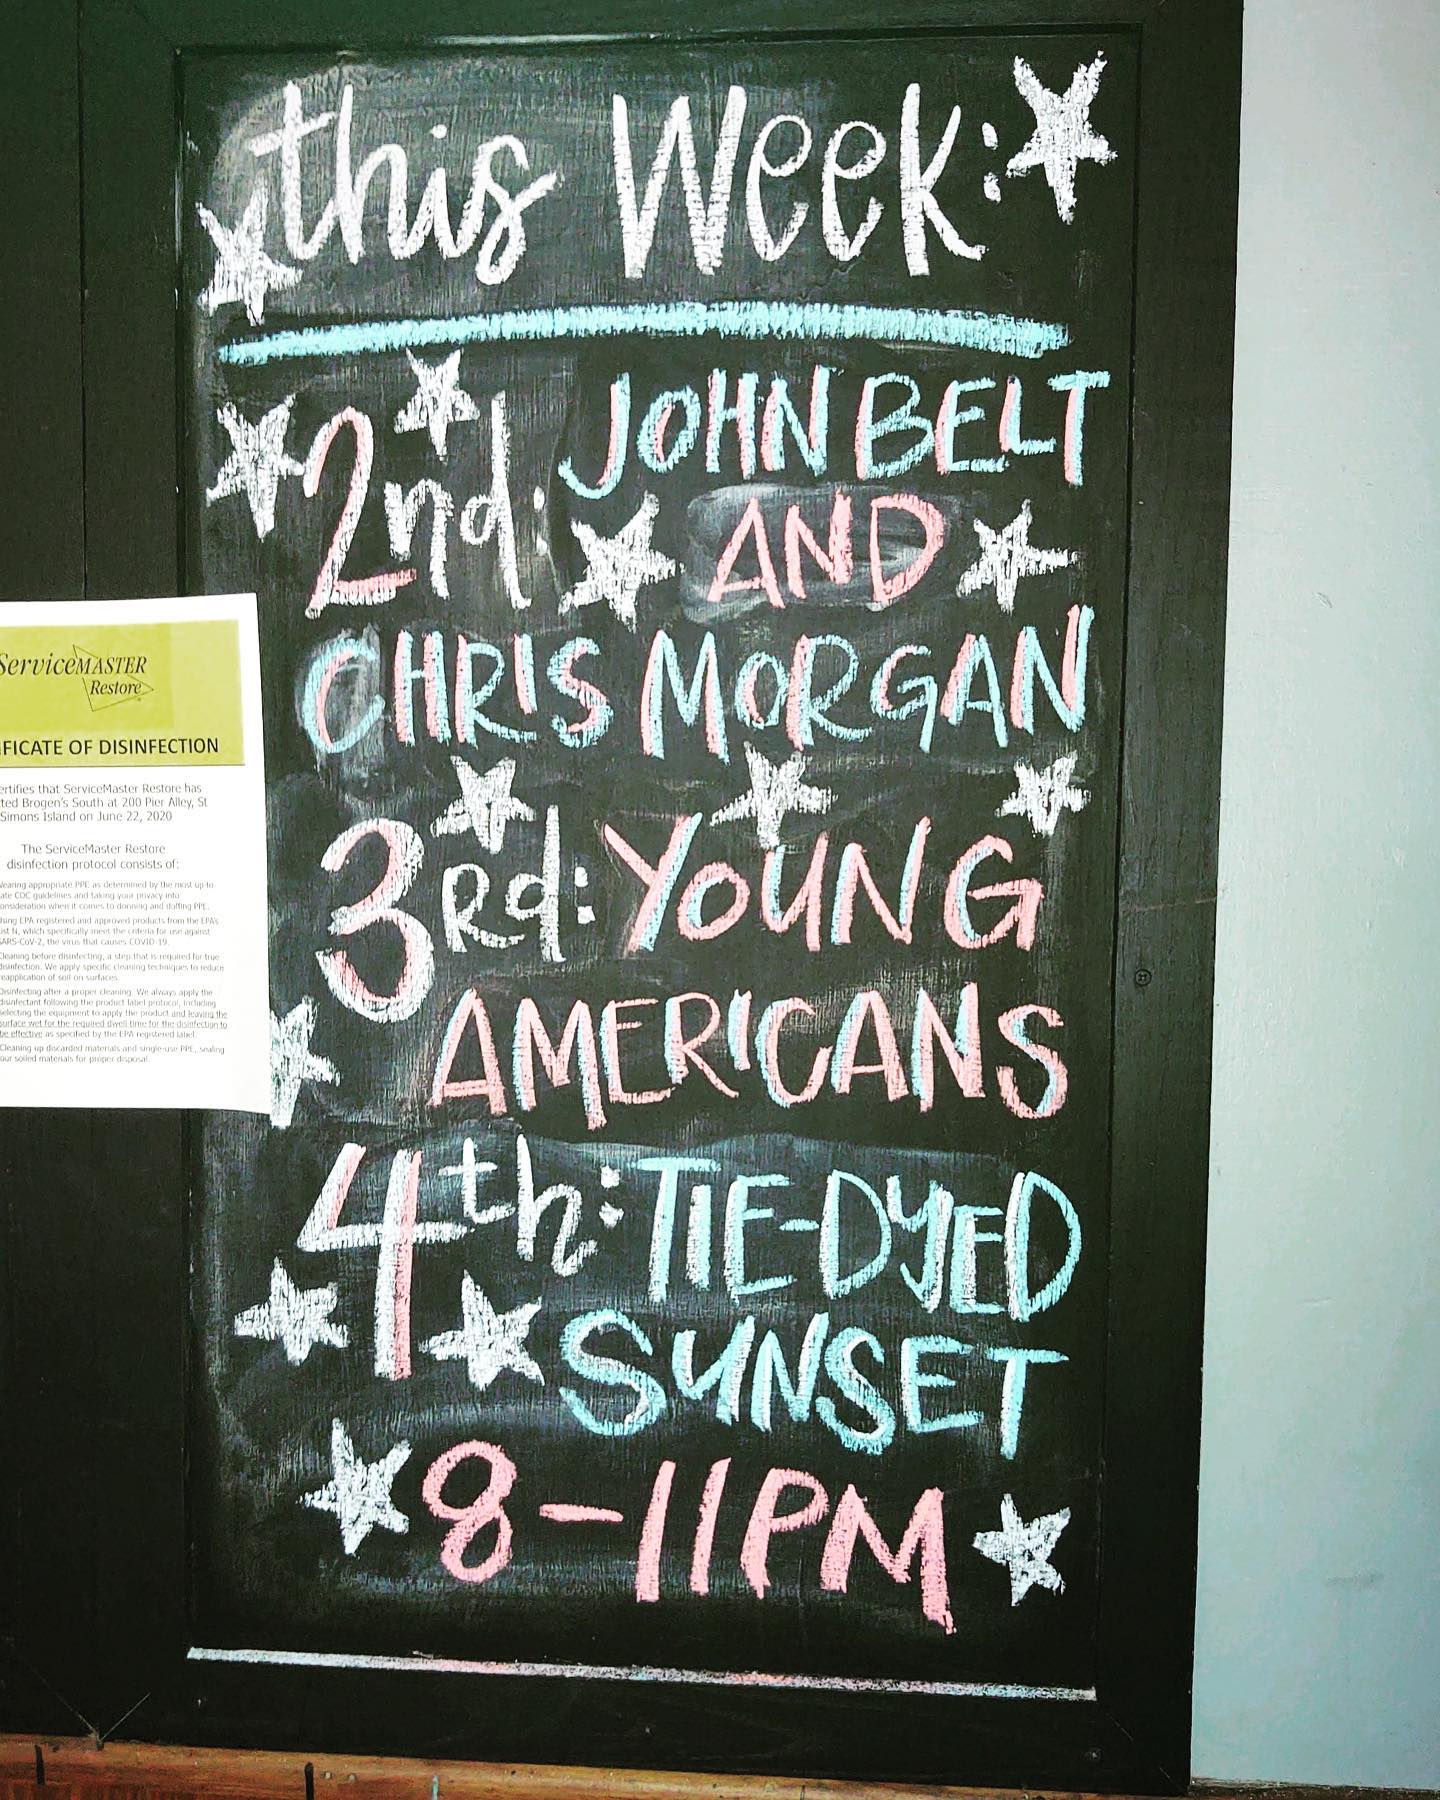 this Week:
2nd: JOHN BELT
AND
CHRIS MORGAN
3rd: YOUNG
AMERICANS
4th: TIE-DYED
SUNSET
8-11PM
ServiceMASTER
Restore
IFICATE OF DISINFECTION
ertifies that ServiceMaster Restore has
ted Brogen's South at 200 Pier Alley, St
Simons Island on June 22, 2020
The ServiceMaster Restore
disinfection protocol consists of:
Wearing appropriate PPE as determined by the most up-to
ate CDC guidelines and taking your privacy into
onsideration when it comes to donning and doffing PPE.
Using EPA registered and approved products from the EPA's
ist N, which specifically meet the criteria for use against
SARS-CoV-2, the virus that causes COVID-19.
Cleaning before disinfecting, a step that is required for true
disinfection. We apply specific cleaning techniques to reduce
reapplication of soil on surfaces.
Disinfecting after a proper cleaning. We always apply the
disinfectant following the product label protocol, including
selecting the equipment to apply the product and leaving the
surface wet for the required dwell time for the disinfection to
be effective as specified by the EPA registered label.
Cleaning up discarded materials and single-use PPE, sealing
our soiled materials for proper disposal.